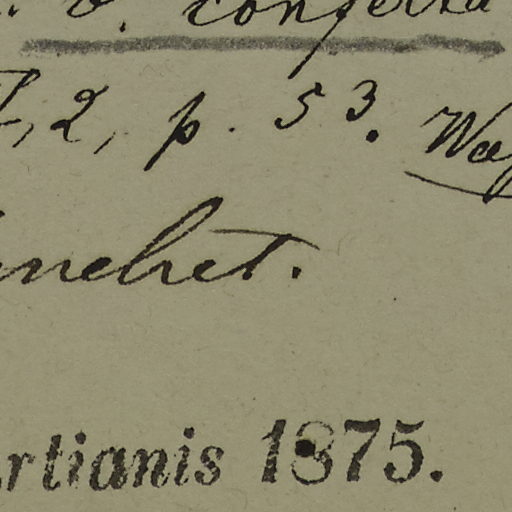 v. conferta
, 2, p. 53. Wa
nchet.
rtianis 1875.